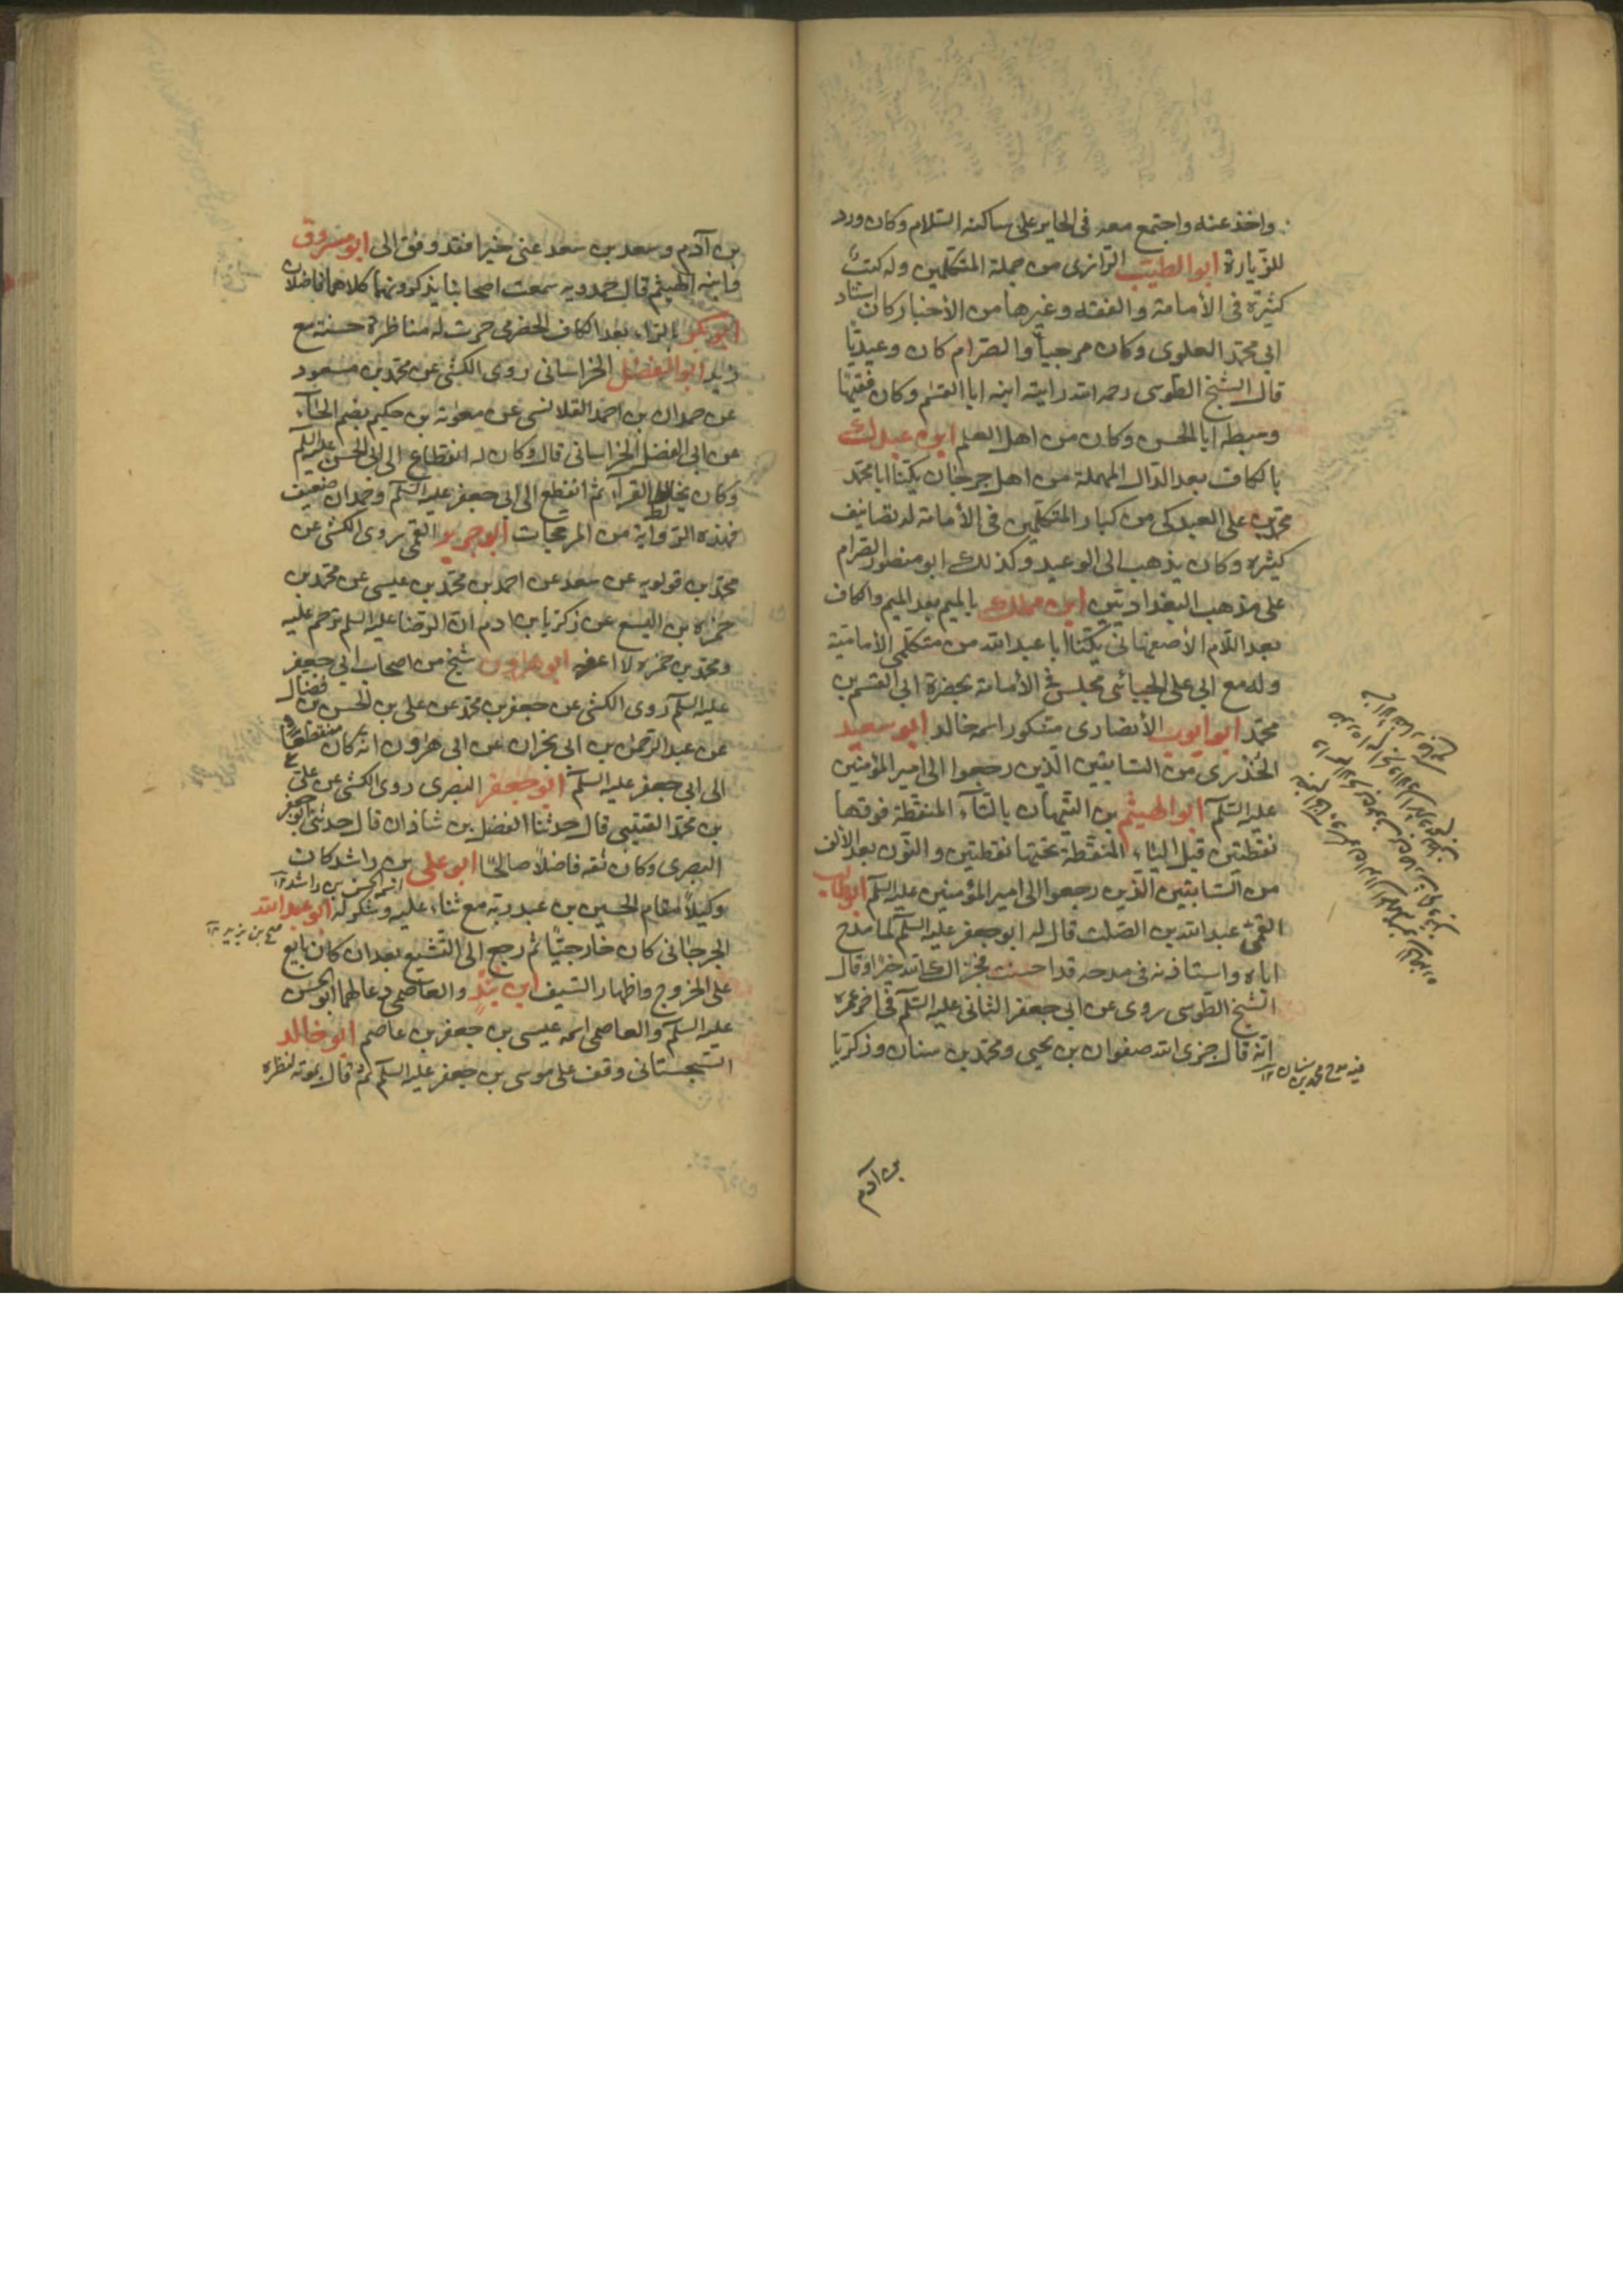 واخذ عنه واجتمع معه فى الحاير على ساكنه السلام وكان ورد
للزيارة ابو الطيب الرازى من جملة المتكلمين وله كتب
كثيرة فى الأمامة والفقه وغيرها من الأخبار كان استاد
ابى محمد العلوى وكان مرجيا والصرام كان وعيديا
قال الشيخ الطوسى رحمه الله رايت ابنه ابا القسم وكان فقيها
وسبطه ابا الحسن وكان من اهل العلم ابن عبدك
بالكاف بعد الدال المهملة من اهل جرجان يكنا ابا محمد
محمد بن على العبدكى من كبار المتكلمين فى الأمامة له تصانيف
كثيره وكان يذهب الى الوعيد وكذلك ابو منصور الصرام
على مذهب البغداديين ابن مملك بالميم بعد الميم والكاف
بعد اللام الأصفهانى يكنا ابا عبد الله من متكلمى الأمامية
وله مع ابى على الجبائى مجلس فى الأمامة بحضرة ابى القسم بن
محمد ابو ايوب الأنصارى مشكور اسمه خالد ابو سعيد
الخدرى من السابقين الذين رجعوا الى امير المؤمنين
عليه السلم ابو الهيثم بن التيهان بالتاء المنقطة فوقها
نقطتين قبل الياء المنقطة تحتها نقطتين والنون بعد الالف
من السابقين الذين رجعوا الى امير المؤمنين عليه السلم ابوطالب
القمى عبد الله بن الصلت قال له ابو جعفر عليه السلم لما مدح
اباه واستاذنه فى مدحه قد احسنت فجزاك الله خيرا وقال
الشيخ الطوسى روى عن ابى جعفر الثانى عليه السلم فى اخر عمره
انه قال جزى الله صفوان بن يحيى ومحمد بن سنان وزكريا
فيه مدح محمد بن سنان ١٢
بن آدم
بن آدم وسعد بن سعد عنى خيرا فقد وفوا لى ابو مسروق
وابنه الهيثم قال حمدويه سمعت اصحابنا يذكرونهما كلاهما فاضلان
ابو بكر بالراء بعد الكاف الحضرمى جرت له مناظرة حسنة مع
زيد ابو الفضل الخراسانى روى الكشى عن محمد بن مسعود
عن حمدان بن احمد القلانسى عن معوية بن حكيم بضم الحاء
عن ابى الفضل الخراسانى قال وكان له انقطاع الى ابى الحسن عليه السلم
وكان يخالط القراء ثم انقطع الى ابى جعفر عليه السلم وحمدان ضعيف
فهذه الرواية من المرجحات ابو جرير القمى روى الكشى عن
محمد بن قولويه عن سعد عن احمد بن محمد بن عيسى عن محمد بن
حمزه بن اليسع عن زكريا بن ادم ان الرضا عليه السلم ترحم عليه
ومحمد بن حمزه لا اعرفه ابو هارون شيخ من اصحاب ابى جعفر
عليه السلم روى الكشى عن جعفر بن محمد عن على بن الحسن بن فضال
عن عبد الرحمن بن ابى نجران عن ابى هرون انه كان منقطعا
الى ابى جعفر عليه السلم ابو جعفر البصرى روى الكشى عن على
بن محمد القتيبى قال حدثنا الفضل بن شاذان قال حدثنى ابو جعفر
البصرى وكان ثقه فاضلا صالحا ابو على بن راشد كان
اسمه الحسن بن راشد ١٢
وكيلا مقام الحسين بن عبد ربه مع ثناء عليه وشكر له ابو عبد الله
الجرجانى كان خارجيا ثم رجع الى التشيع بعد ان كان بايع
على الخروج واظهار السيف ابن بند والعاصمى دعا لهما ابو الحسن
عليه السلم والعاصمى اسمه عيسى بن جعفر بن عاصم ابو خالد
السجستانى وقف على موسى بن جعفر عليه السلم ثم قال بموته لنظره